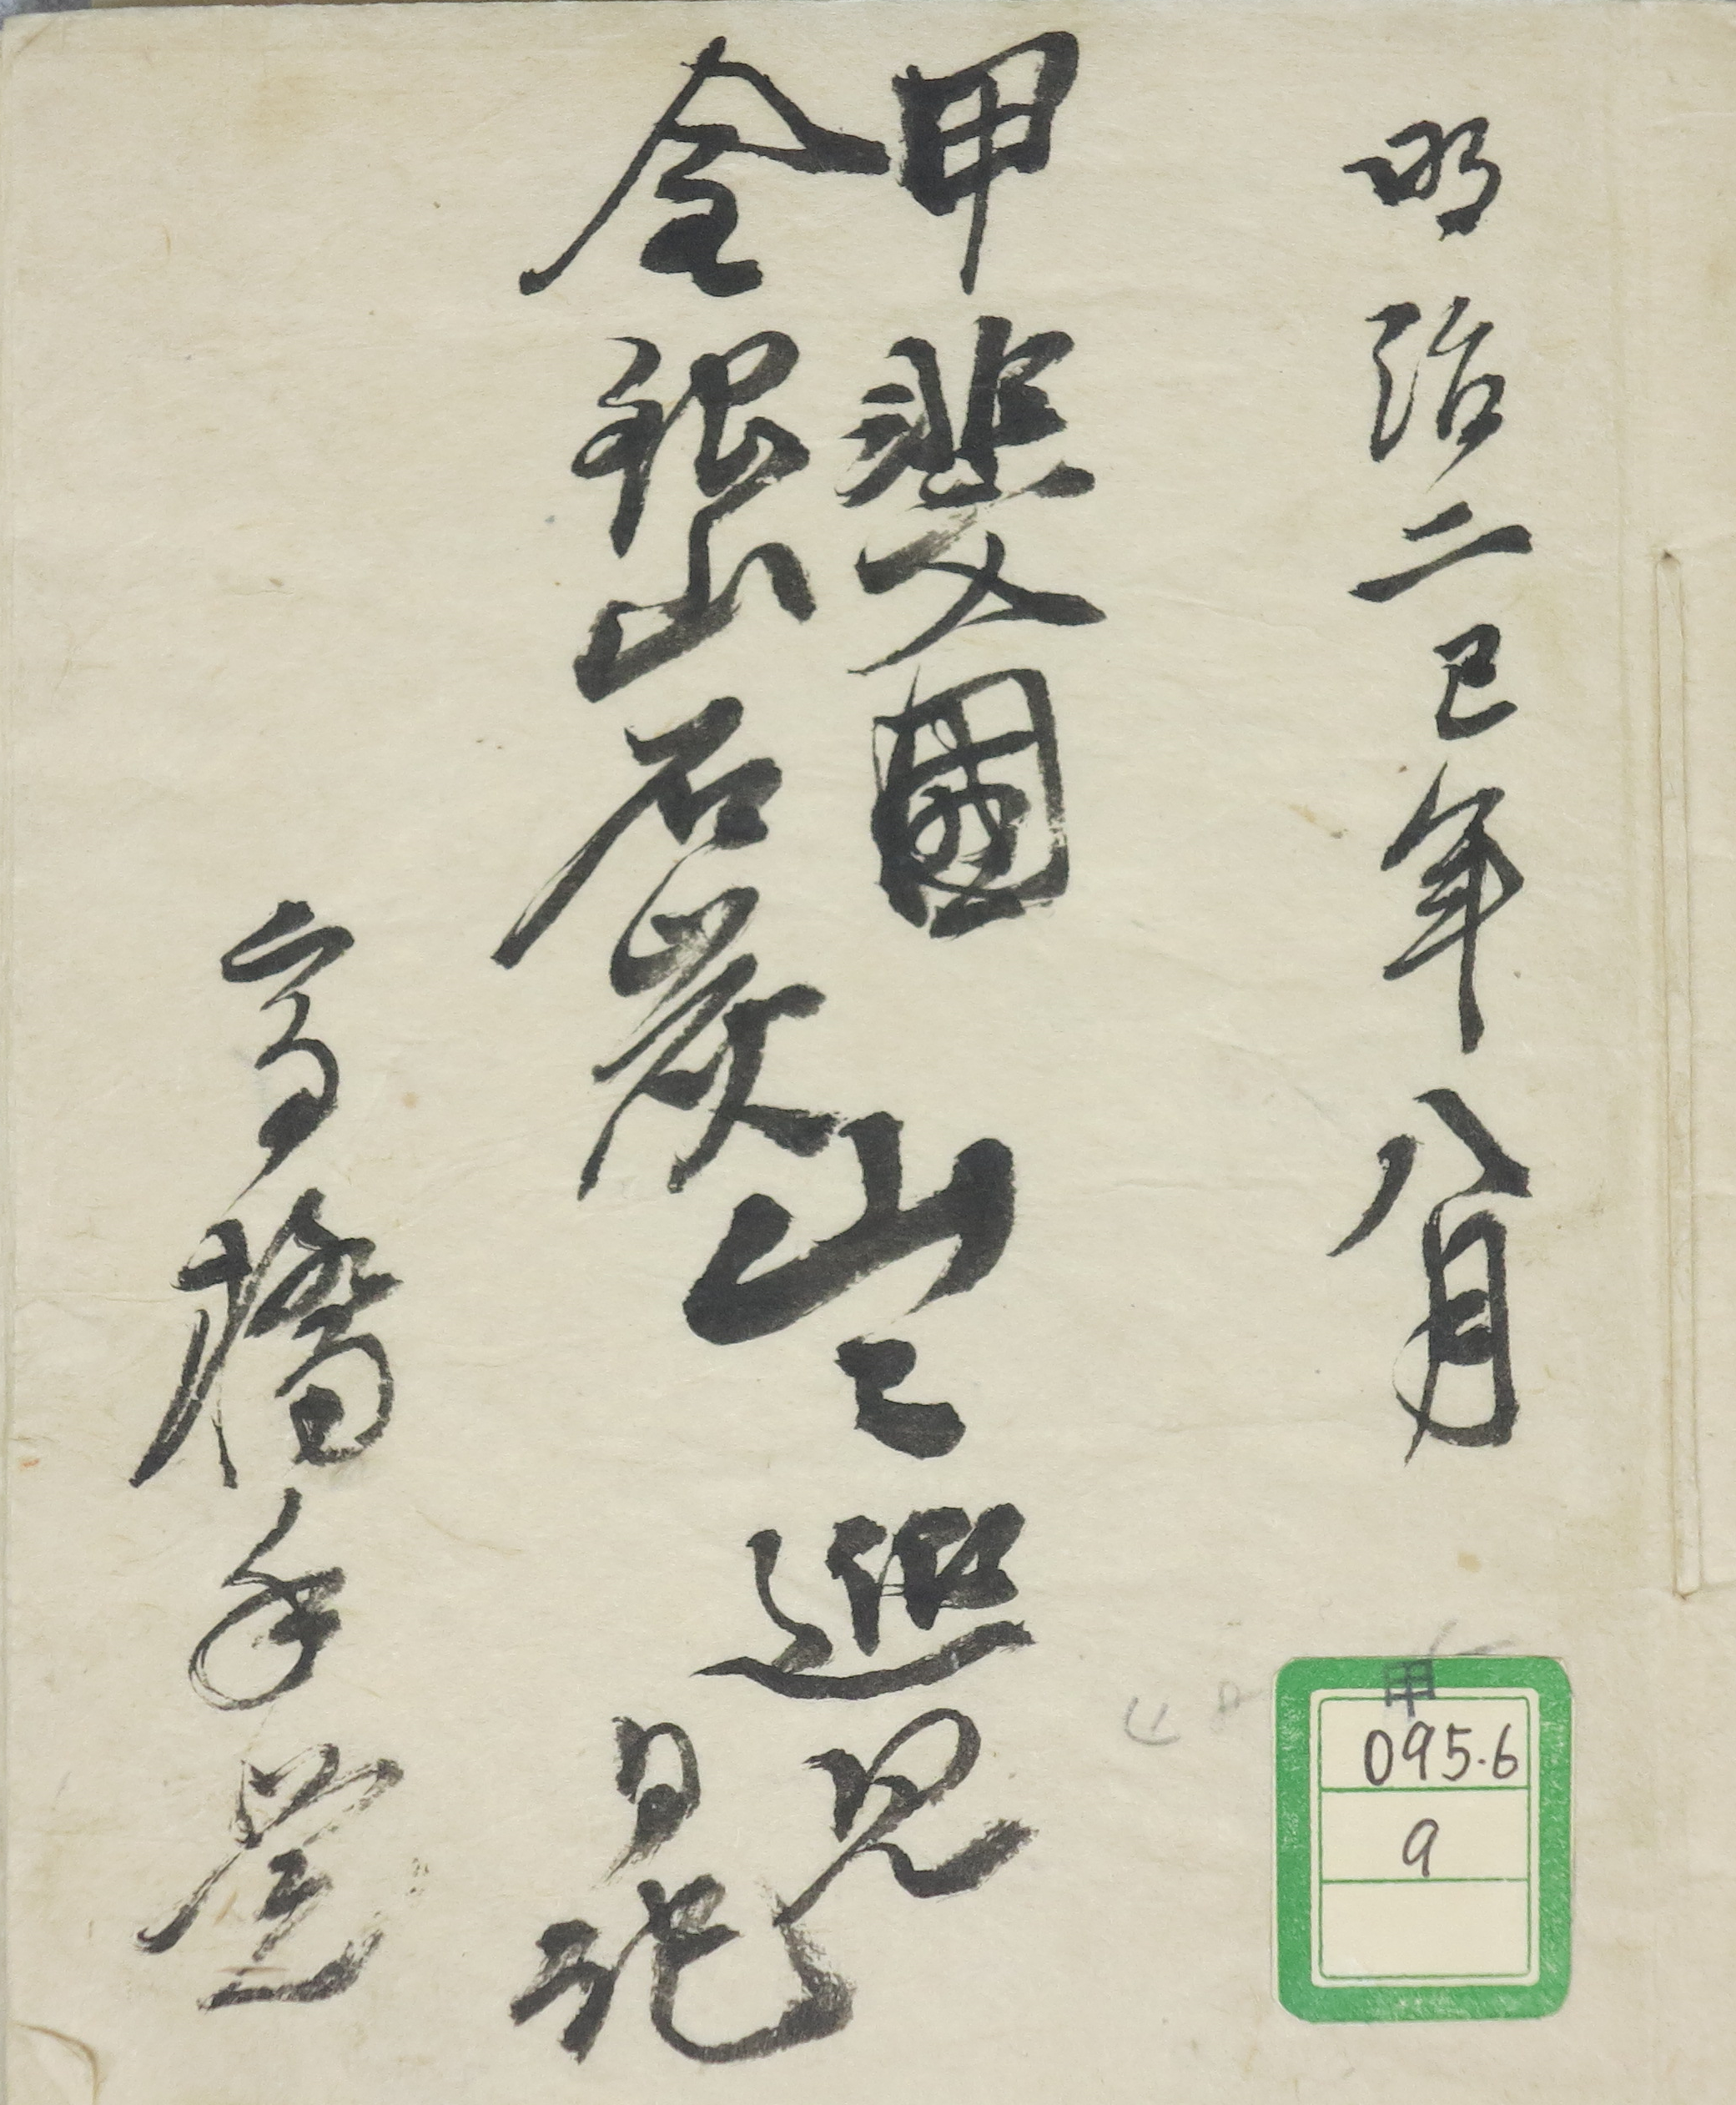 明治二巳年八月
甲斐國
金銀山石炭
山々巡見
日記
高橋
甲
095.6
9